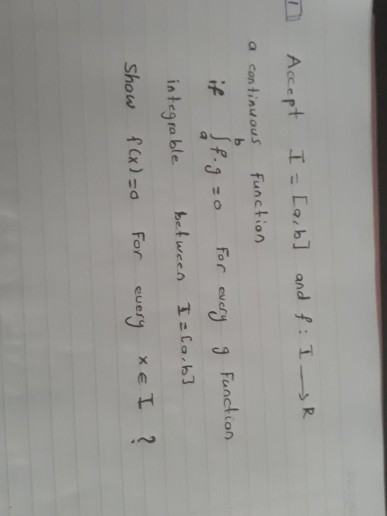 1 Accept I = [a,b] and f : I → R
a continuous function
if ∫ₐᵇ f.g = 0 For every g Function
integrable between I = [a,b]
Show f(x)=0 For every x ∈ I ?